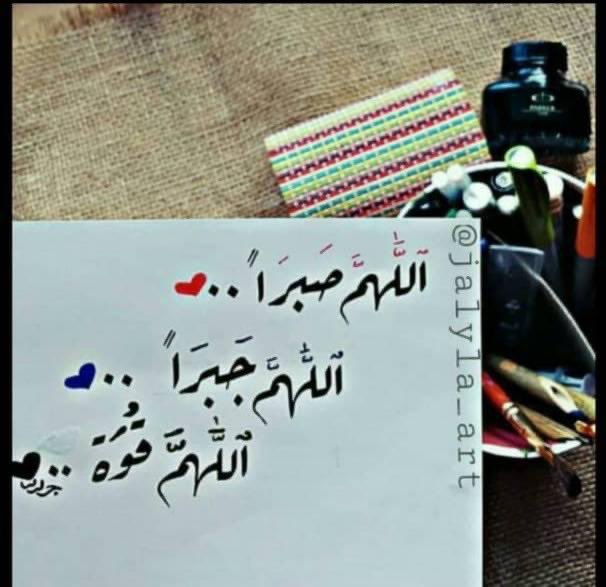 اللَّهُمَّ صَبرَاً ..
اللَّهُمَّ جَبرَاً ..
اللَّهُمَّ قُوَّة ..
@jalyla_art
PARKER